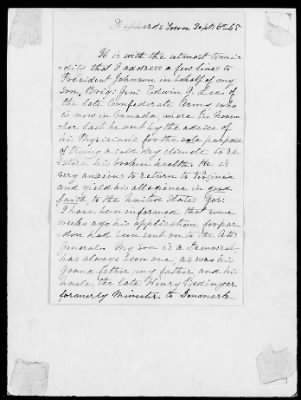 Shepherds Town Sept. 6th 65
It is with the utmost timi-
dity that I address a few lines to
President Johnson in behalf of my
son, Brig: Gen: Edwin G. Lee: of
the late Confederate Army who
is now in Canada, where in Novem
ber last he went by the advice of
his Physicians for the sole purpose
of trying a cold dry climate to re
store his broken health. He is
very anxious to return to Virginia
and yield his allegiance in good
faith, to the United States Gov:
I have been informed that some
weeks ago his application for par
don had been sent on to the Atty
General. My son is a Democrat
has always been one, as was his
grand father my father and his
Uncle, the late Henry Bedinger
formerly Minister to Denmark